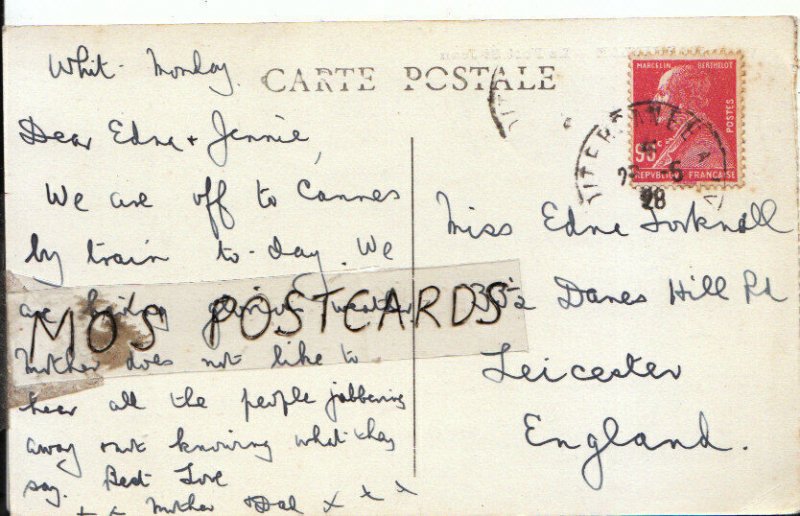 Whit- Monday.
CARTE POSTALE
Dear Edna + Jennie,
We are off to Cannes
by train to-day. We
are having glorious weather
Mother does not like to
hear all the people jabbering
away & not knowing what they
say. Best Love
x x Mother & Dad x x x
MARCELIN BERTHELOT
POSTES
90c
REPVBLIQVE FRANÇAISE
5
28
Miss Edna
Danes Hill Rd
Leicester
England.
MOS POSTCARDS